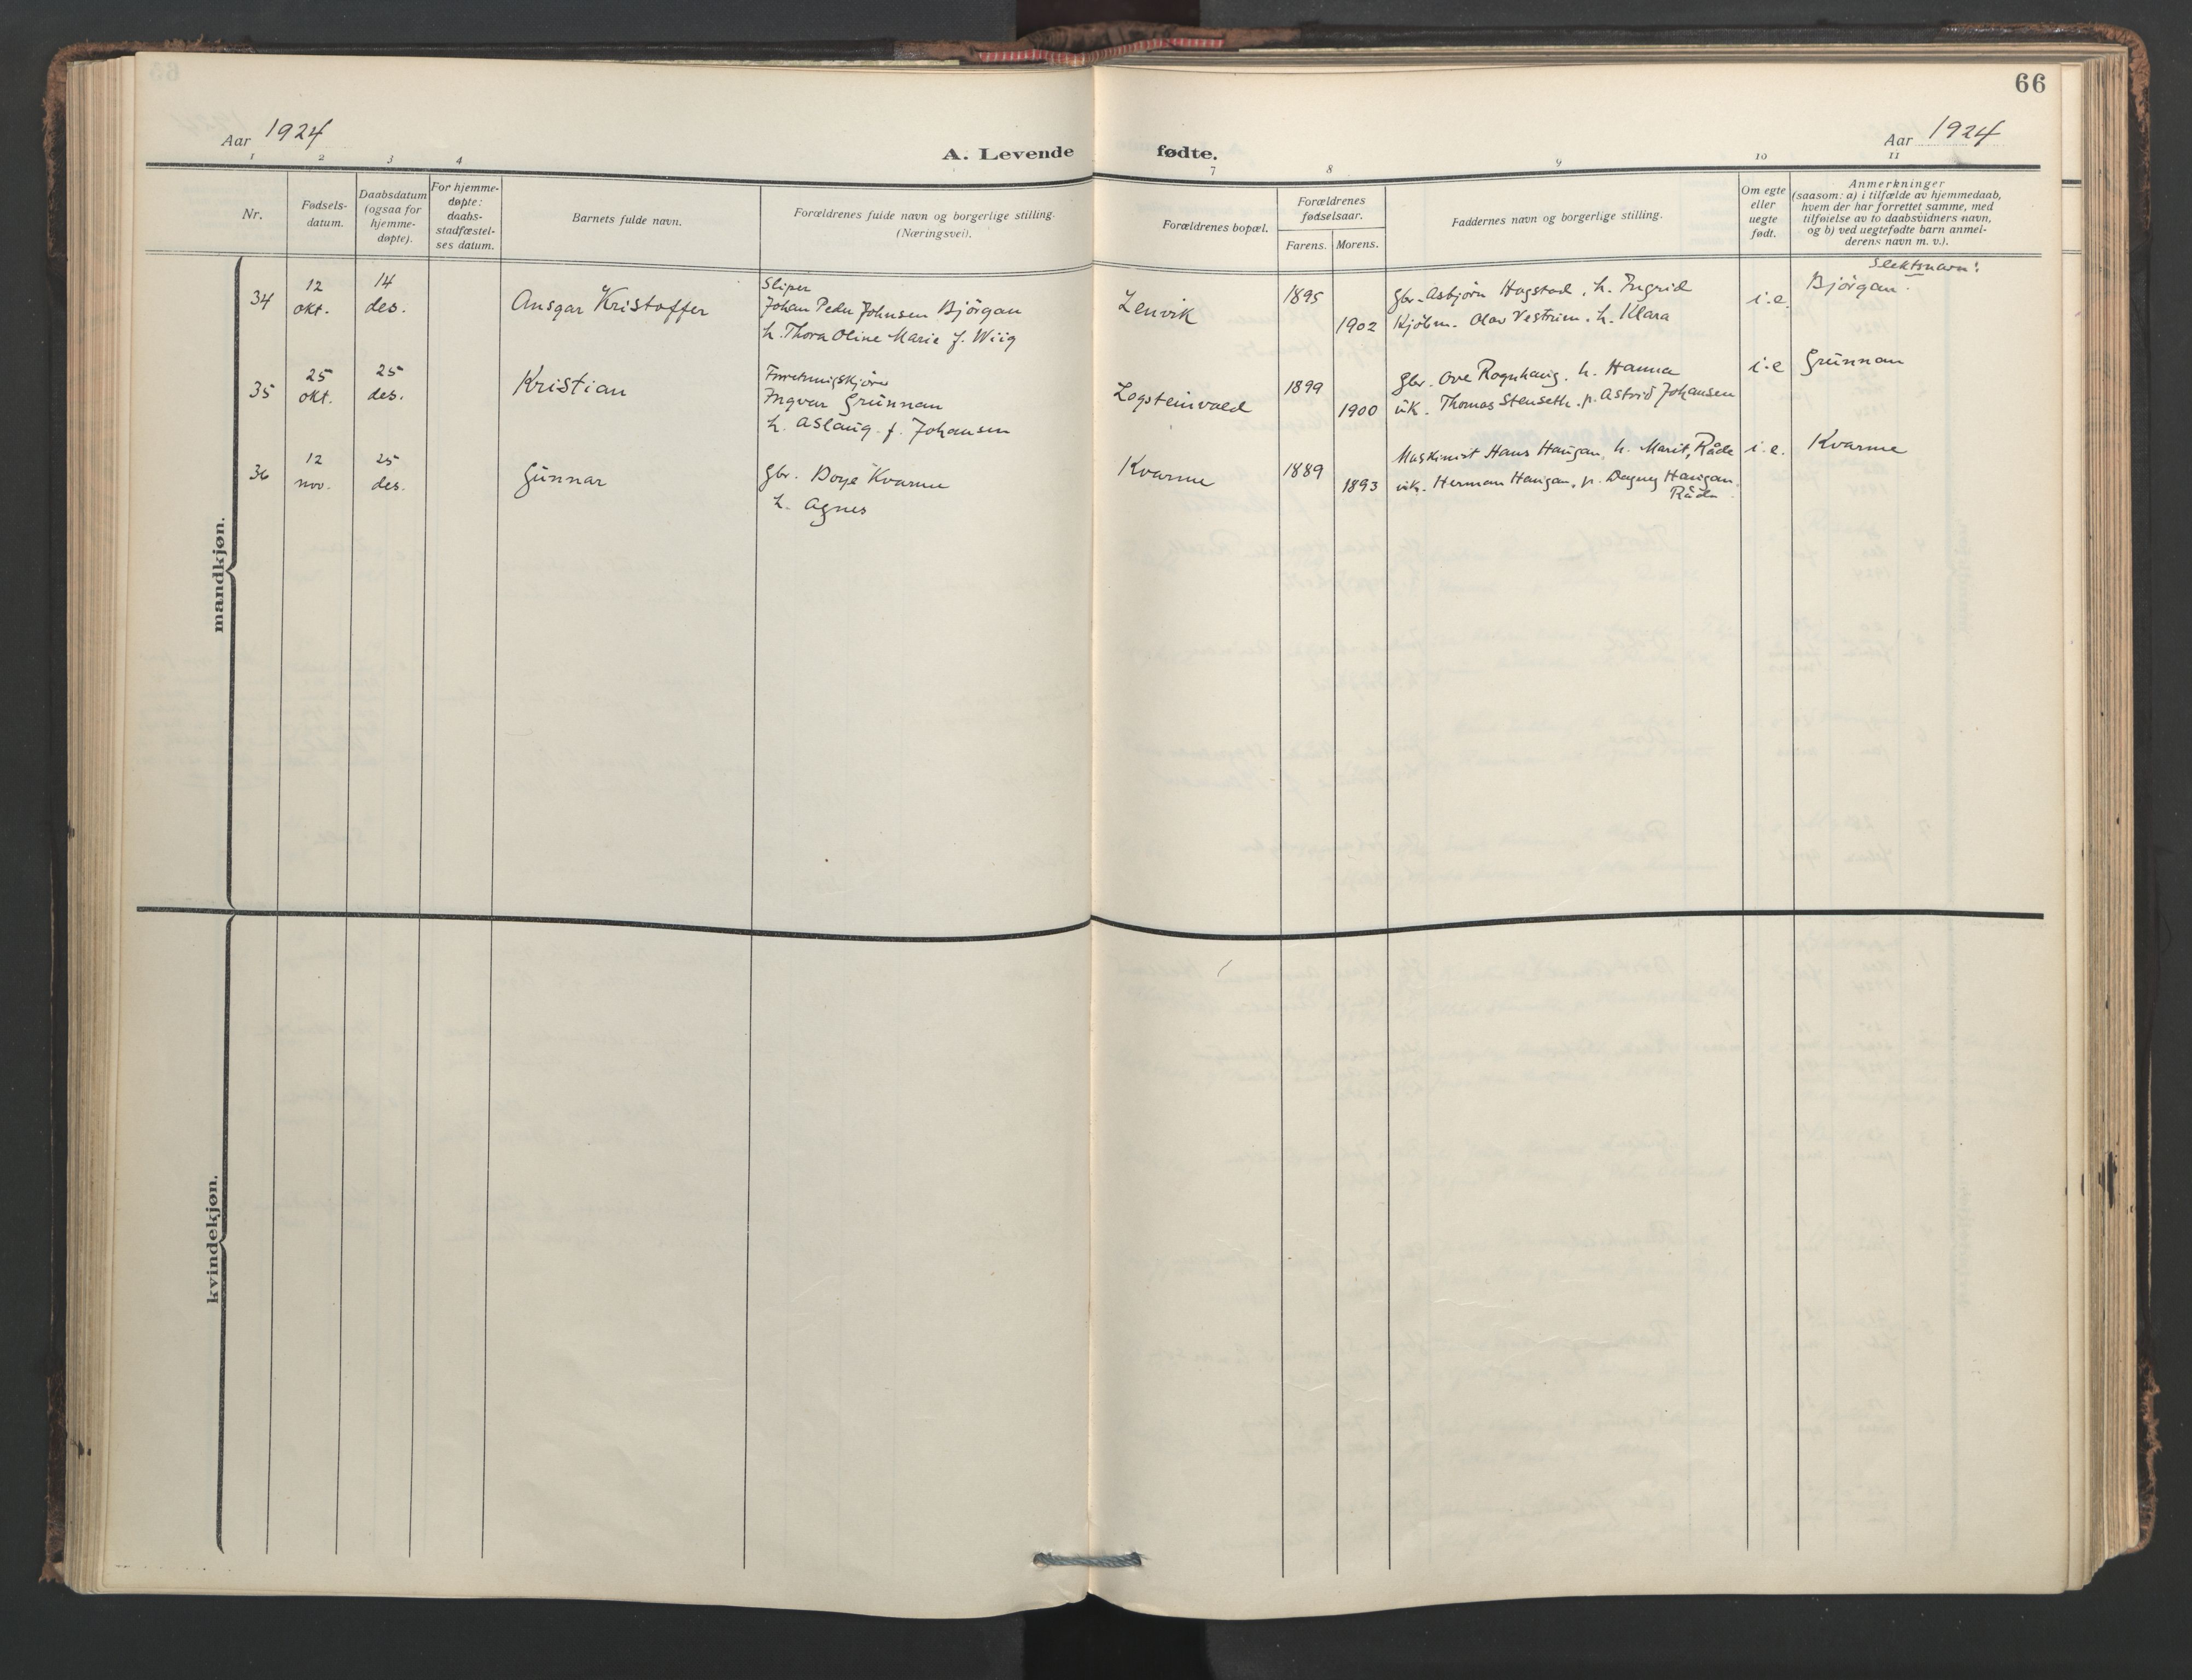 66
Aar 1924
A. Levende fødte.
Aar 1924
1 2 3 4 7 8 9 10 11
Nr.
Fødsels-
datum.
Daabsdatum
(ogsaa for
hjemme-
døpte).
For hjemme-
døpte:
daabs-
stadfæstel-
ses datum.
Barnets fulde navn.
Forældrenes fulde navn og borgerlige stilling.
(Næringsvei).
Forældrenes bopæl.
Forældrenes
fødselsaar.
Farens. Morens.
Faddernes navn og borgerlige stilling.
Om egte
eller
uegte
født.
Anmerkninger
(saasom: a) i tilfælde av hjemmedaab,
hvem der har forrettet samme, med
tilføielse av to daabsvidners navn,
og b) ved uegtefødte barn anmel-
derens navn m. v.).
mandkjøn.
Slektsnavn:
34
12
okt.
14
des.
Ansgar Kristoffer
Sliper
Johan Peder Johnsen Björgan
h. Thora Oline Marie f. Wiig
Lenvik
1895
1902
Gbr. Asbjörn Hogstad, h. Ingrid
Kjöbm. Olav Vestrum. h. Klara
i.e.
Björgan.
35
25
okt.
25
des.
Kristian
Ingvar Grünnan
h. Aslaug. f. Johansen
Logsteinvald
1899
1900
Gbr. Ove Rognhaug. h. Hanna
uk. Thomas Stenseth. p. Astrid Johansen
i.e
Grünnan
36
12
nov.
25
des.
Gunnar
Gbr. Dorje Kvarme
h. Agnes
Kvarme
1889
1893
Maskinist Hans Haugan, h. Marit, Råde
uk. Herman Haugan, p. Dagny Haugan.
Råde
i.e.
Kvarme
kvindekjøn.